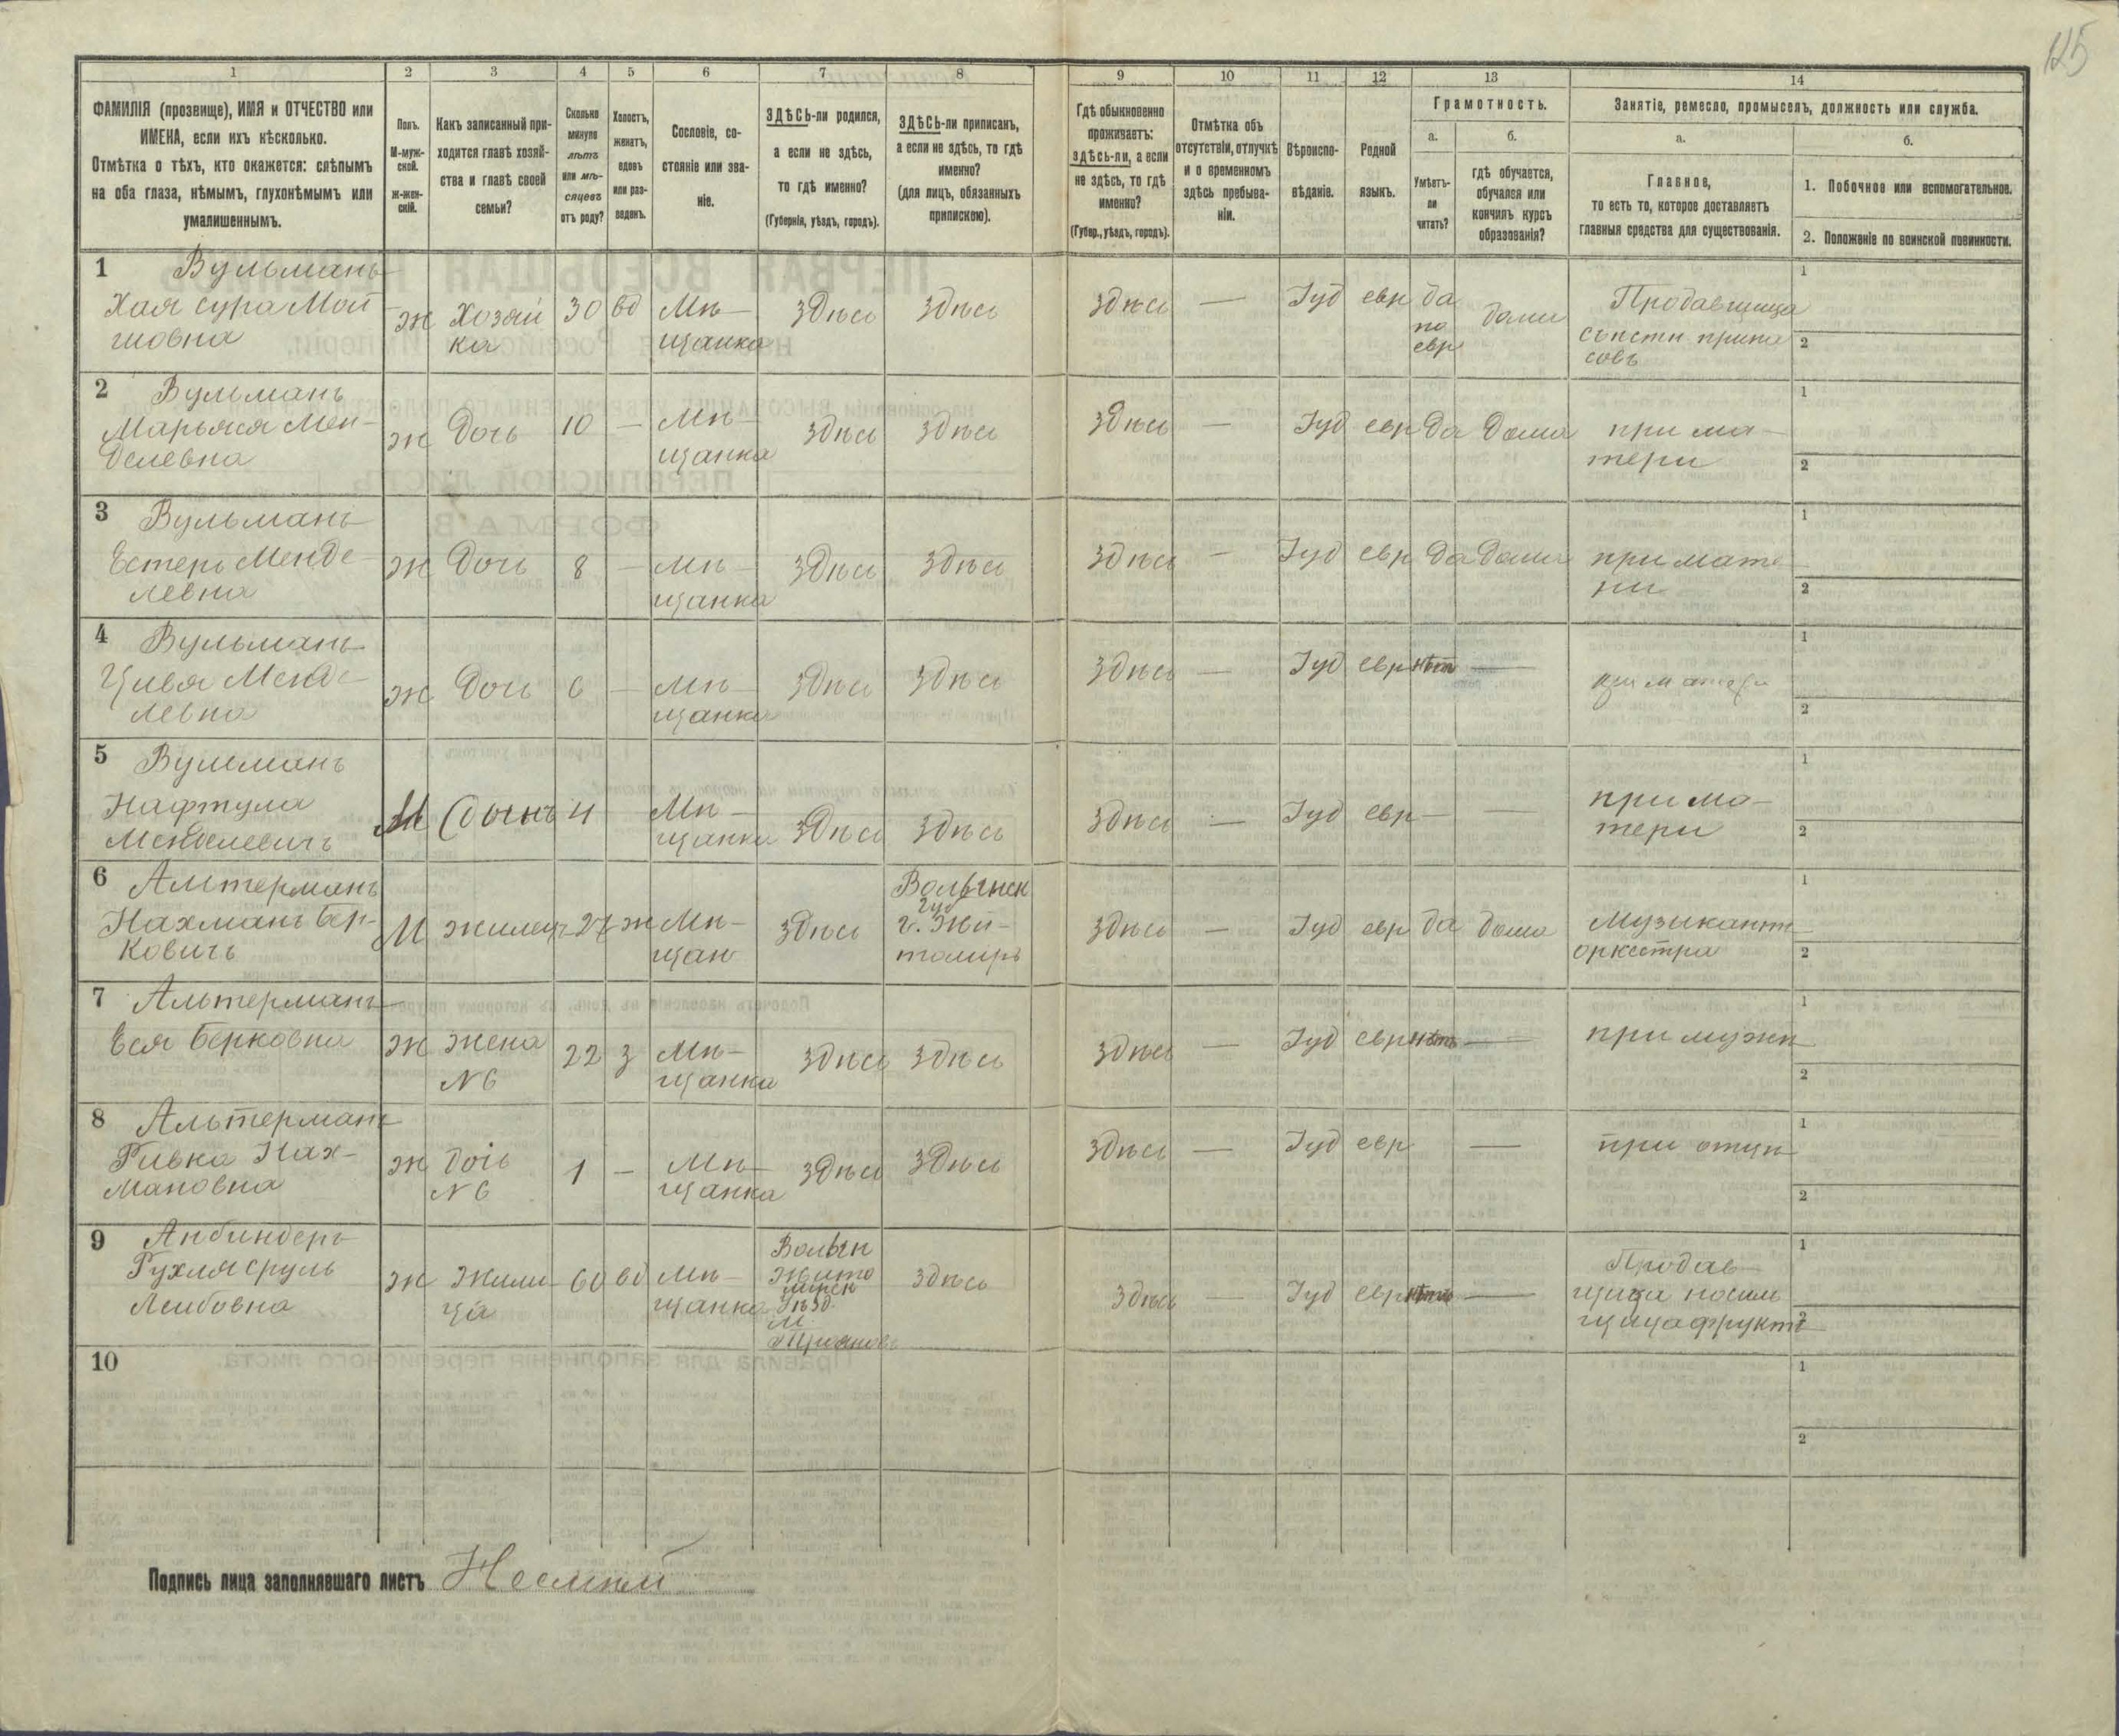 125
1 2 3 4 5 6 7 8 9 10 11 12 13 14
ФАМИЛІЯ (прозвище), ИМЯ и ОТЧЕСТВО или
ИМЕНА, если ихъ нѣсколько.
Отмѣтка о тѣхъ, кто окажется: слѣпымъ
на оба глаза, нѣмымъ, глухонѣмымъ или
умалишеннымъ.
Полъ.
М-муж-
ской.
ж-жен-
скій.
Какъ записанный при-
ходится главѣ хозяй-
ства и главѣ своей
семьи?
Сколько
минуло
лѣтъ
или мѣ-
сяцевъ
отъ роду?
Холостъ,
женатъ,
вдовъ
или раз-
веденъ.
Сословіе, со-
стояніе или зва-
ніе.
ЗДѢСЬ-ли родился,
а если не здѣсь,
то гдѣ именно?
(Губернія, уѣздъ, городъ).
ЗДѢСЬ-ли приписанъ,
а если не здѣсь, то гдѣ
именно?
(для лицъ, обязанныхъ
припискою).
Гдѣ обыкновенно
проживаетъ:
здѣсь-ли, а если
не здѣсь, то гдѣ
именно?
(Губер., уѣздъ, городъ).
Отмѣтка объ
отсутствіи, отлучкѣ
и о временномъ
здѣсь пребыва-
ніи.
Вѣроиспо-
вѣданіе.
Родной
языкъ.
Грамотность.
а.
Умѣетъ-
ли
читать?
б.
гдѣ обучается,
обучался или
кончилъ курсъ
образованія?
Занятіе, ремесло, промыселъ, должность или служба.
а.
Главное,
то есть то, которое доставляетъ
главныя средства для существованія.
б.
1. Побочное или вспомогательное.
2. Положеніе по воинской повинности.
1 Вульманъ
Хая Сура Мой
шовна
ж
Хозяй
ка
30
вд
Мѣ-
щанка
здѣсь
здѣсь
здѣсь
—
Іуд
евр
да
по
евр
дома
Продавщица
съѣстн припа
совъ
1
2
2 Вульманъ
Марьяся Мен-
делевна
ж
Дочь
10
—
Мѣ-
щанка
здѣсь
здѣсь
здѣсь
—
Іуд
евр
да
дома
при ма-
тери
1
2
3 Вульманъ
Естеръ Менде-
левна
ж
Дочь
8
—
Мѣ-
щанка
здѣсь
здѣсь
здѣсь
—
Іуд
евр
да
дома
при мате
ри
1
2
4 Вульманъ
Цивя Менде-
левна
ж
Дочь
6
—
Мѣ-
щанка
здѣсь
здѣсь
здѣсь
—
Іуд
евр
нѣтъ
—
при матери
1
2
5 Вульманъ
Нафтула
Менделевичъ
М
4
Мѣ-
щанка
здѣсь
здѣсь
здѣсь
—
Іуд
евр
—
—
при ма-
тери
1
2
6 Альтерманъ
Нахманъ Бер-
ковичъ
М
жилец
27
ж
Мѣ-
щан
здѣсь
Волынск
губ
г. Жи-
томиръ
здѣсь
—
Іуд
евр
да
дома
Музыкантъ
оркестра
1
2
7 Альтерманъ
Еся Берковна
ж
жена
№6
22
з
Мѣ-
щанка
здѣсь
здѣсь
здѣсь
—
Іуд
евр
нѣтъ
—
при мужѣ
1
2
8 Альтерманъ
Ривка Нах-
мановна
ж
дочь
№6
1
—
Мѣ-
щанка
здѣсь
здѣсь
здѣсь
—
Іуд
евр
—
при отцѣ
1
2
9 Анбиндеръ
Рухля Сруль
Леибовна
ж
Жили
ца
60
вд
Мѣ-
щанка
Волын
Жито
мирск
уѣзд.
м.
здѣсь
здѣсь
—
Іуд
евр
нѣтъ
—
Продав-
щица
фруктъ
1
2
10
1
2
Подпись лица заполнявшаго листъ